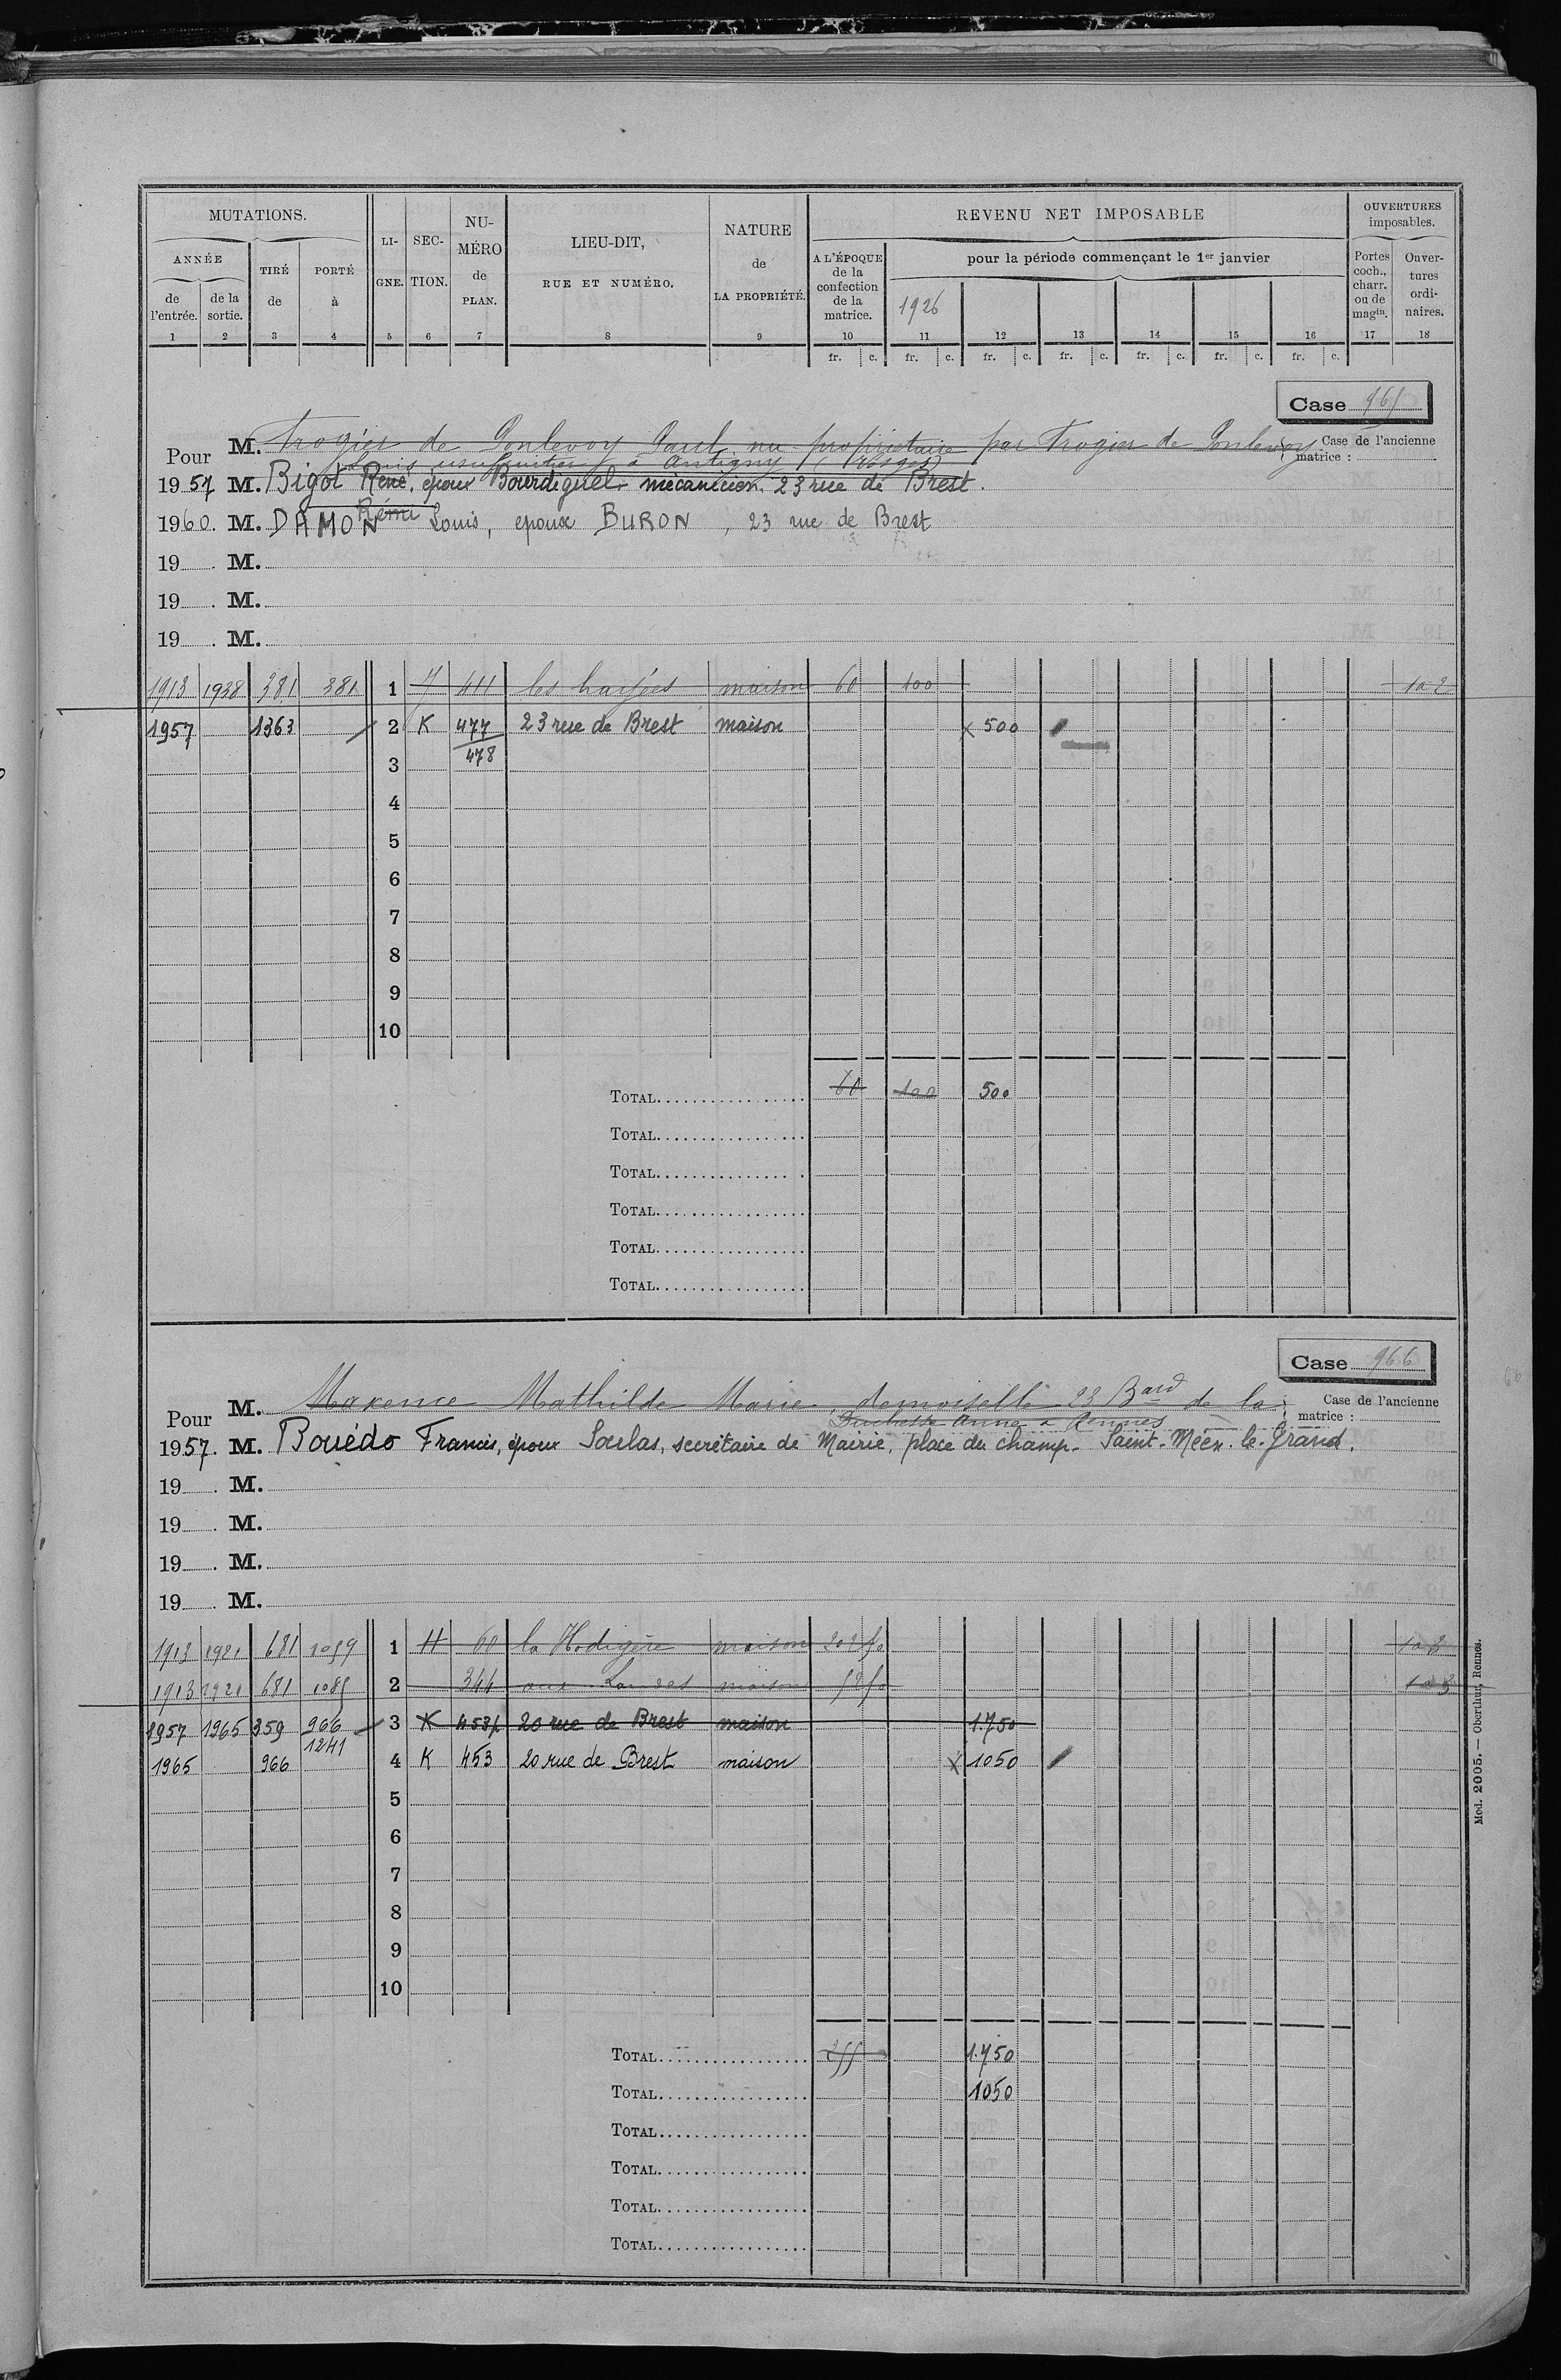 MUTATIONS.
ANNÉE
de l'entrée.
de la sortie.
TIRÉ de
PORTÉ à
LI-GNE.
SEC-TION.
NU-MÉRO de PLAN.
LIEU-DIT, RUE ET NUMÉRO.
NATURE de LA PROPRIÉTÉ.
REVENU NET IMPOSABLE
A L'ÉPOQUE de la confection de la matrice.
pour la période commençant le 1er janvier
1926
OUVERTURES imposables.
Portes coch., charr. ou de magin.
Ouver-tures ordi-naires.
1 2 3 4 5 6 7 8 9 10 11 12 13 14 15 16 17 18
fr. c. fr. c. fr. c. fr. c. fr. c. fr. c. fr. c.
Case 965
Pour M. Trogier de Ponlevoy Paul nu propriétaire par Trogier de Ponlevoy
Case de l'ancienne matrice :
Louis usufruitier à Antigny (Vosges)
1957 M. Bigot René, époux Bourdiguel mécanicien. 23 rue de Brest.
Rémi
1960. M. DAMON Louis, epoux BURON, 23 rue de Brest
19 . M.
19 . M.
19 . M.
1913 1938 381 381 1 411 maison 60 100 1 à 2
1957 1363 2 K 477 23 rue de Brest maison x 500
478
3
4
5
6
7
8
9
10
TOTAL 60 100 500
TOTAL
TOTAL
TOTAL
TOTAL
TOTAL
Case 966
Pour M. Maxence Mathilde Marie demoiselle 23 Bard de la
Case de l'ancienne matrice :
Duchesse Anne à Rennes
1957. M. Bouédo Francis, époux Soulas, secrétaire de Mairie, place du champ. Saint-Méen-le-Grand.
19 . M.
19 . M.
19 . M.
19 . M.
1913 1921 681 1059 1 H 60 la Hodigère maison 202 50
1913 1921 681 1085 2 344 aux Landes maison 52 50
1957 1965 359 966 3 K 453p 20 rue de Brest maison 1.750
1241
1965 966 4 K 453 20 rue de Brest maison x 1050
5
6
7
8
9
10
TOTAL 255 1.750
TOTAL 1050
TOTAL
TOTAL
TOTAL
TOTAL
Mod. 2005. — Oberthur, Rennes.